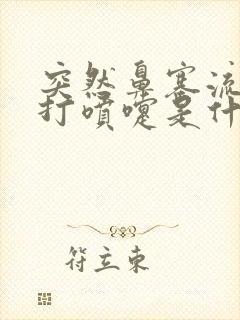 突然鼻塞流
打喷嚏是什
符立东